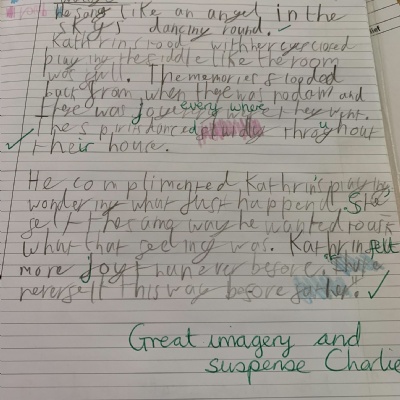 He song like an angel in the
skys dancing round.
Kathrin stood with her eyes closed
playing the fiddle like the room
was full. The memories flooded
back from when there was nodan and
there was joy every where they went.
The spirits danced throughout
their house.
He complimented Kathrin's playing
wondering what Just happend. She
felt the same way he wanted to ask
what that feeling was. Kathrin felt
more joy than ever before.
never felt this way before
Great imagery and
suspense Charlie